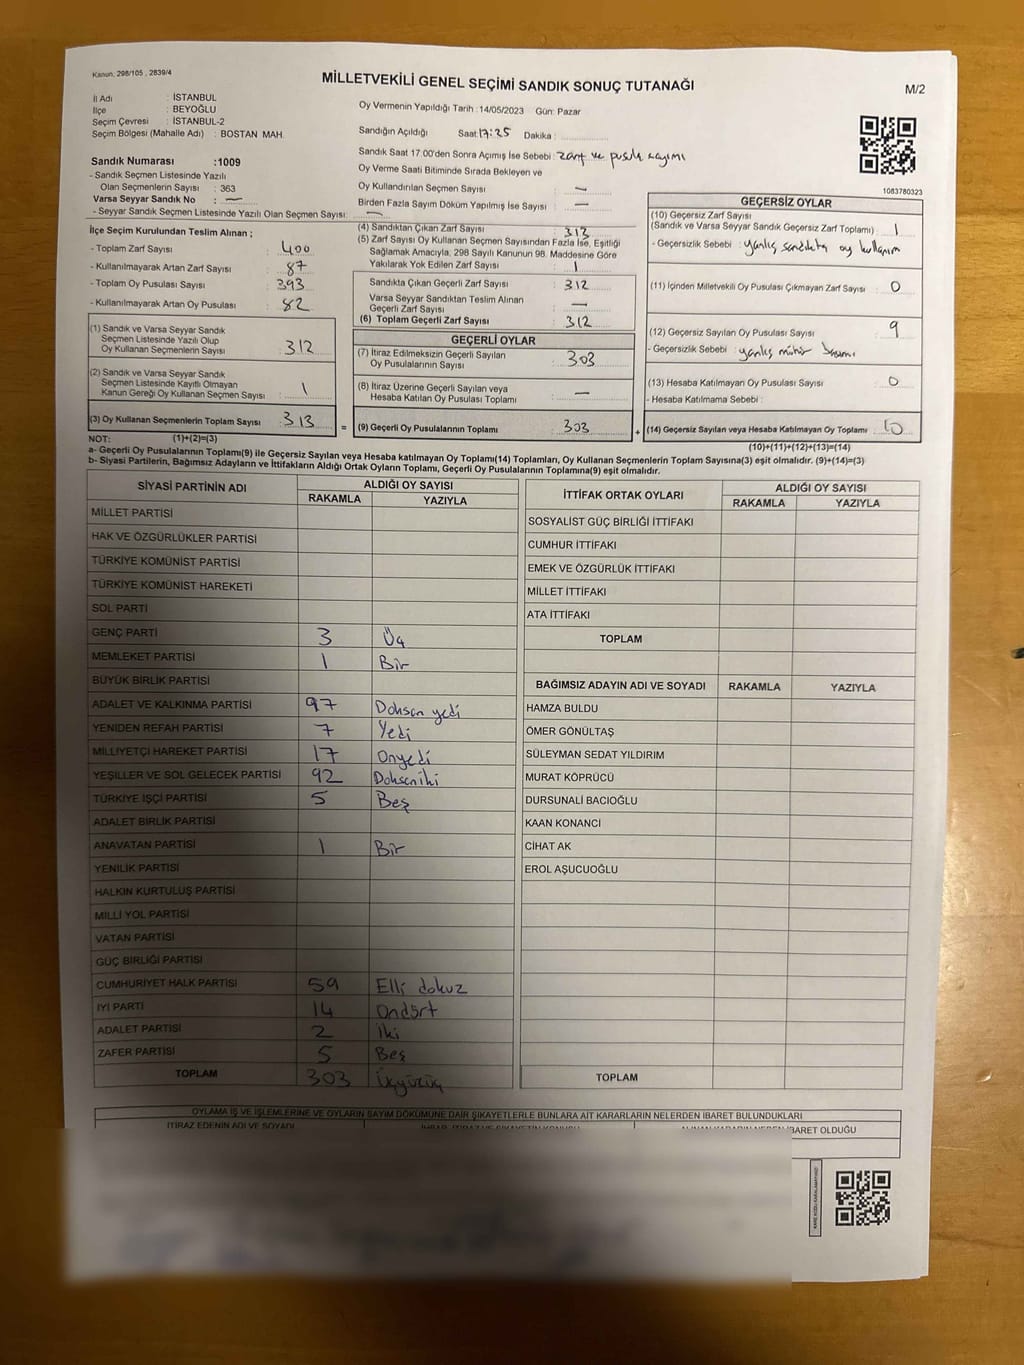 Kanun, 298/105 , 2839/4
MİLLETVEKİLİ GENEL SEÇİMİ SANDIK SONUÇ TUTANAĞI
M/2
İl Adı : İSTANBUL
İlçe : BEYOĞLU
Seçim Çevresi : İSTANBUL-2
Seçim Bölgesi (Mahalle Adı) : BOSTAN MAH.
Oy Vermenin Yapıldığı Tarih : 14/05/2023 Gün: Pazar
Sandığın Açıldığı Saat: 17:25 Dakika :
Sandık Saat 17.00'den Sonra Açılmış İse Sebebi : zarf ve pusula sayımı
Oy Verme Saati Bitiminde Sırada Bekleyen ve
Oy Kullandırılan Seçmen Sayısı : —
Birden Fazla Sayım Döküm Yapılmış İse Sayısı : —
1083780323
Sandık Numarası :1009
- Sandık Seçmen Listesinde Yazılı
Olan Seçmenlerin Sayısı : 363
Varsa Seyyar Sandık No : —
- Seyyar Sandık Seçmen Listesinde Yazılı Olan Seçmen Sayısı: —
İlçe Seçim Kurulundan Teslim Alınan ;
- Toplam Zarf Sayısı : 400
- Kullanılmayarak Artan Zarf Sayısı : 87
- Toplam Oy Pusulası Sayısı : 393
- Kullanılmayarak Artan Oy Pusulası : 82
(1) Sandık ve Varsa Seyyar Sandık
Seçmen Listesinde Yazılı Olup
Oy Kullanan Seçmenlerin Sayısı : 312
(2) Sandık ve Varsa Seyyar Sandık
Seçmen Listesinde Kayıtlı Olmayan
Kanun Gereği Oy Kullanan Seçmen Sayısı : 1
(3) Oy Kullanan Seçmenlerin Toplam Sayısı : 313
(4) Sandıktan Çıkan Zarf Sayısı : 313
(5) Zarf Sayısı Oy Kullanan Seçmen Sayısından Fazla İse, Eşitliği
Sağlamak Amacıyla, 298 Sayılı Kanunun 98. Maddesine Göre
Yakılarak Yok Edilen Zarf Sayısı : 1
Sandıkta Çıkan Geçerli Zarf Sayısı : 312
Varsa Seyyar Sandıktan Teslim Alınan
Geçerli Zarf Sayısı : —
(6) Toplam Geçerli Zarf Sayısı : 312
GEÇERLİ OYLAR
(7) İtiraz Edilmeksizin Geçerli Sayılan
Oy Pusulalarının Sayısı : 303
(8) İtiraz Üzerine Geçerli Sayılan veya
Hesaba Katılan Oy Pusulası Toplamı : —
= (9) Geçerli Oy Pusulalarının Toplamı : 303 +
GEÇERSİZ OYLAR
(10) Geçersiz Zarf Sayısı
(Sandık ve Varsa Seyyar Sandık Geçersiz Zarf Toplamı) : 1
- Geçersizlik Sebebi : yanlış sandıkta oy kullanım
(11) İçinden Milletvekili Oy Pusulası Çıkmayan Zarf Sayısı : 0
(12) Geçersiz Sayılan Oy Pusulası Sayısı : 9
- Geçersizlik Sebebi : yanlış mühür
(13) Hesaba Katılmayan Oy Pusulası Sayısı : 0
- Hesaba Katılmama Sebebi :
(14) Geçersiz Sayılan veya Hesaba Katılmayan Oy Toplamı : 10
NOT: (1)+(2)=(3)
(10)+(11)+(12)+(13)=(14)
a- Geçerli Oy Pusulalarının Toplamı(9) ile Geçersiz Sayılan veya Hesaba katılmayan Oy Toplamı(14) Toplamları, Oy Kullanan Seçmenlerin Toplam Sayısına(3) eşit olmalıdır. (9)+(14)=(3)
b- Siyasi Partilerin, Bağımsız Adayların ve İttifakların Aldığı Ortak Oyların Toplamı, Geçerli Oy Pusulalarının Toplamına(9) eşit olmalıdır.
SİYASİ PARTİNİN ADI ALDIĞI OY SAYISI
RAKAMLA YAZIYLA
MİLLET PARTİSİ
HAK VE ÖZGÜRLÜKLER PARTİSİ
TÜRKİYE KOMÜNİST PARTİSİ
TÜRKİYE KOMÜNİST HAREKETİ
SOL PARTİ
GENÇ PARTİ 3 Üç
MEMLEKET PARTİSİ 1 Bir
BÜYÜK BİRLİK PARTİSİ
ADALET VE KALKINMA PARTİSİ 97 Doksan yedi
YENİDEN REFAH PARTİSİ 7 Yedi
MİLLİYETÇİ HAREKET PARTİSİ 17 Onyedi
YEŞİLLER VE SOL GELECEK PARTİSİ 92 Doksaniki
TÜRKİYE İŞÇİ PARTİSİ 5 Beş
ADALET BİRLİK PARTİSİ
ANAVATAN PARTİSİ 1 Bir
YENİLİK PARTİSİ
HALKIN KURTULUŞ PARTİSİ
MİLLİ YOL PARTİSİ
VATAN PARTİSİ
GÜÇ BİRLİĞİ PARTİSİ
CUMHURİYET HALK PARTİSİ 59 Elli dokuz
İYİ PARTİ 14 Ondört
ADALET PARTİSİ 2 İki
ZAFER PARTİSİ 5 Beş
TOPLAM 303 Üçyüzüç
İTTİFAK ORTAK OYLARI ALDIĞI OY SAYISI
RAKAMLA YAZIYLA
SOSYALİST GÜÇ BİRLİĞİ İTTİFAKI
CUMHUR İTTİFAKI
EMEK VE ÖZGÜRLÜK İTTİFAKI
MİLLET İTTİFAKI
ATA İTTİFAKI
TOPLAM
BAĞIMSIZ ADAYIN ADI VE SOYADI RAKAMLA YAZIYLA
HAMZA BULDU
ÖMER GÖNÜLTAŞ
SÜLEYMAN SEDAT YILDIRIM
MURAT KÖPRÜCÜ
DURSUNALİ BACIOĞLU
KAAN KONANCI
CİHAT AK
EROL AŞUCUOĞLU
TOPLAM
OYLAMA İŞ VE İŞLEMLERİNE VE OYLARIN SAYIM DÖKÜMÜNE DAİR ŞİKAYETLERLE BUNLARA AİT KARARLARIN NELERDEN İBARET BULUNDUKLARI
İTİRAZ EDENİN ADI VE SOYADI
İBARET OLDUĞU